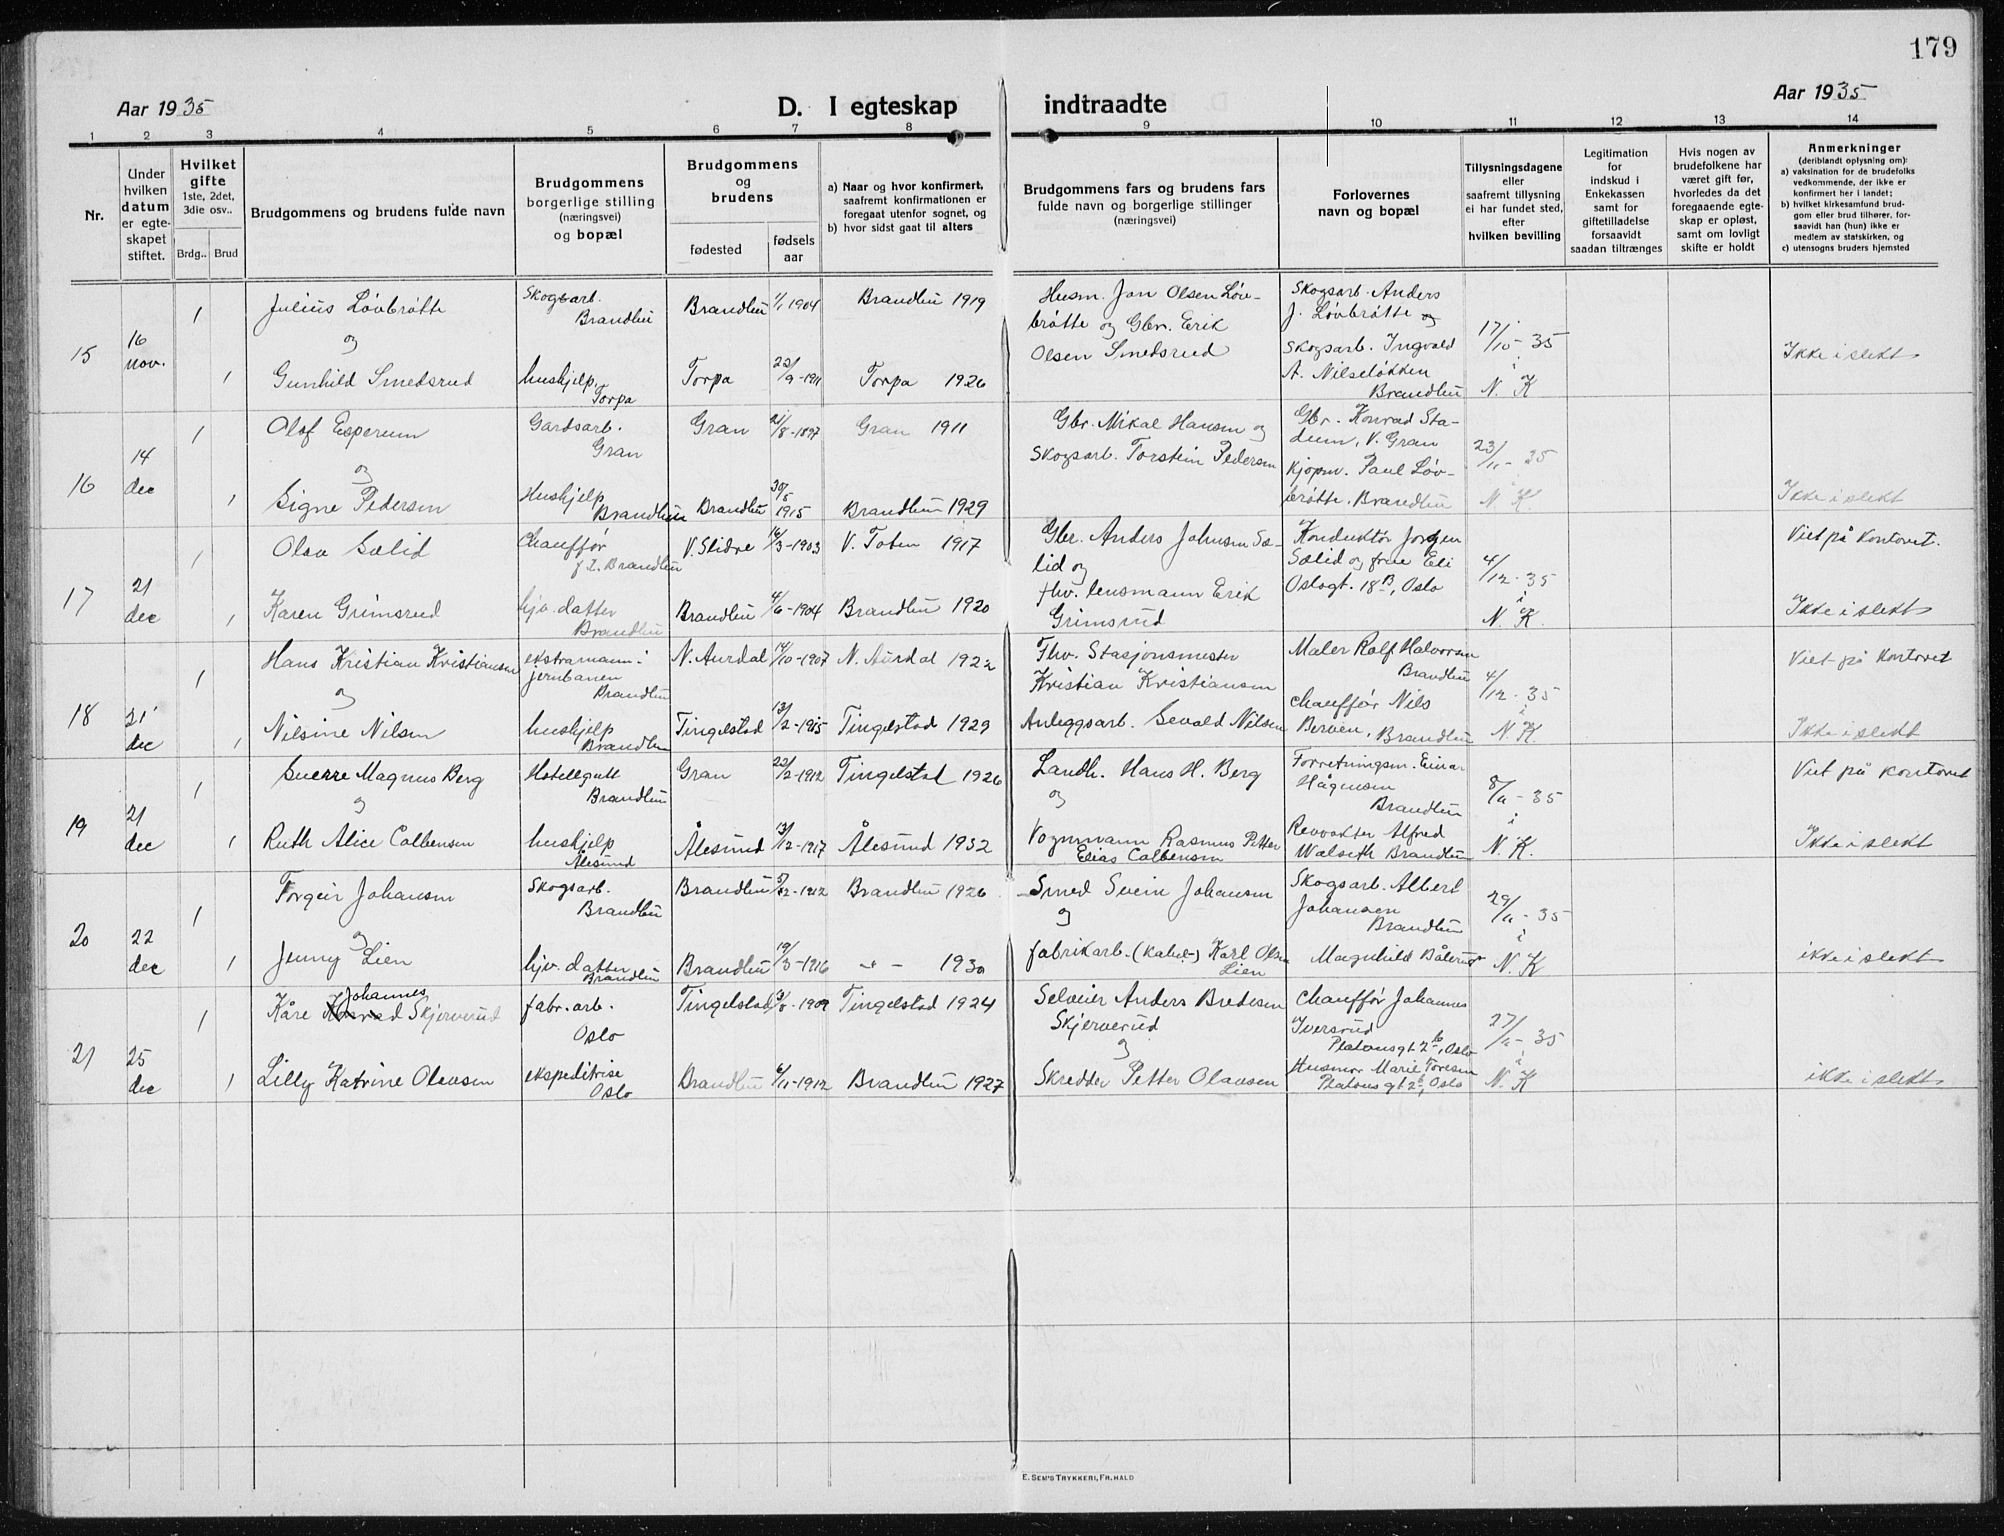 179
Aar 1935
D. I egteskap indtraadte
Aar 1935
1 2 3 4 5 6 7 8 9 10 11 12 13 14
Nr.
Under hvilken datum er egteskapet stiftet.
Hvilket gifte
1ste, 2det, 3die osv..
Brdg.. Brud
Brudgommens og brudens fulde navn
Brudgommens borgerlige stilling (næringsvei) og bopæl
Brudgommens og brudens
fødested
fødsels aar
a) Naar og hvor konfirmert, saafremt konfirmationen er foregaat utenfor sognet, og
b) hvor sidst gaat til alters
Brudgommens fars og brudens fars fulde navn og borgerlige stillinger (næringsvei)
Forlovernes navn og bopæl
Tillysningsdagene eller saafremt tillysning ei har fundet sted, efter hvilken bevilling
Legitimation for indskud i Enkekassen samt for giftetilladelse forsaavidt saadan tiltrænges
Hvis nogen av brudefolkene har været gift før, hvorledes da det foregaaende egteskap er opløst, samt om lovligt skifte er holdt
Anmerkninger
(deriblandt oplysning om):
a) vaksination for de brudefolks vedkommende, der ikke er konfirmert her i landet;
b) hvilket kirkesamfund brudgom eller brud tilhører, forsaavidt han (hun) ikke er medlem av statskirken, og
c) utensogns bruders hjemsted
15 16 nov. 1 Julius Løvbrøtte Skogsarb. Brandbu Brandbu 1/1 1904 Brandbu 1919 Husm. Jon Olsen Løvbrøtte og Gbr. Erik Olsen Smedsrud Skogsarb. Anders J. Løvbrøtte og Skogsarb. Ingvald A. Nilseløkken Brandbu 17/10-35 i N. K Ikke i slekt
og
1 Gunhild Smedsrud hushjelp, Torpa Torpa 22/9-1911 Torpa 1926
16 14 dec 1 Olaf Esperum Gardsarb. Gran Gran 21/8-1897 Gran 1911 Gbr. Mikal Hansen og Skogsarb. Torstein Pedersen Gbr. Konrad Stadum, V. Gran Kjøpm. Paul Løvbrøtte, Brandbu 23/11-35 i N. K. Ikke i slekt
og
1 Signe Pedersen Hushjelp Brandbu Brandbu 30/5 1915 Brandbu 1929
17 21 dec 1 Olav Sælid Chauffør f. t. Brandbu V. Slidre 16/3-1903 V. Toten 1917 Gbr. Anders Johnsen Sælid og fhv. lensmann Erik Grimsrud Konduktør Jørgen Sælid og frue Eli Oslogt. 18B, Oslo 4/12-35 i N. K. Viet på Kontoret.
1 Karen Grimsrud hjv. datter Brandbu Brandbu 4/6-1904 Brandbu 1920 Ikke i slekt
18 21 dec 1 Hans Kristian Kristiansen ekstramann i jernbanen Brandbu N. Aurdal 14/10-1907 N. Aurdal 1922 Fhv. Stasjonsmester Kristian Kristiansen Maler Rolf Halvorsen Brandbu 4/12-35 i N. K. Viet på Kontoret
og
1 Nilsine Nilsen hushjelp Brandbu Tingelstad 13/2-1915 Tingelstad 1929 Anleggsarb. Sevald Nilsen chauffør Nils Berven, Brandbu Ikke i slekt
19 21 dec 1 Sverre Magnus Berg Hotellgutt Brandbu Gran 22/2-1912 Tingelstad 1926 Landh. Hans H. Berg og Forretningsm. Einar Hågensen Brandbu 8/11-35 i N. K. Viet på kontoret
og
1 Ruth Alice Colbensen hushjelp Ålesund Ålesund 13/12-1917 Ålesund 1932 Vognmann Rasmus Petter Elias Colbensen Revvokter Alfred Walseth Brandbu Ikke i slekt
20 22 dec 1 Torgeir Johansen Skogsarb. Brandbu Brandbu 5/12-1912 Brandbu 1926 Smed Svein Johansen og Skogsarb. Albert Johansen Brandbu 29/11-35 i N. K
og
1 Jenny Lien hjv. datter Brandbu Brandbu 19/3-1916 -"- 1930 fabrikarb. (Kabel-) Karl Olsen Lien Magnhild Bålerud ikke i slekt
21 25 dec 1 Kåre Johannes Skjerverud fabr. arb. Oslo Tingelstad 1909 Tingelstad 1924 Selveier Anders Bredesen Skjerverud og Chauffør Johannes Iversrud Platousgt. 2b, Oslo 27/11-35 i N. K
1 Lilly Katrine Olavsen ekspeditrise Oslo Brandbu 6/11-1912 Brandbu 1927 Skredder Petter Olavsen Husmor Marie Toresen Platousgt. 2b, Oslo ikke i slekt
E. SEM'S TRYKKERI, FR.HALD